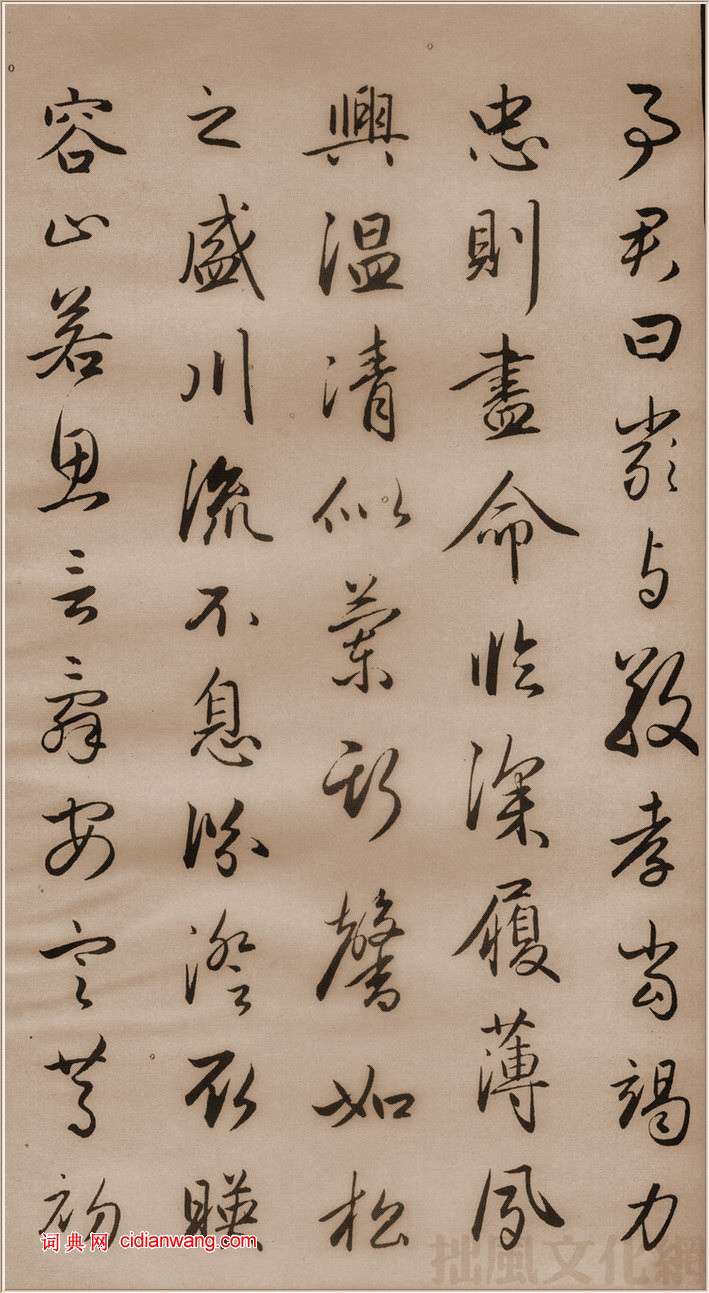 事君曰嚴与敬孝當竭力
忠則盡命临深履薄夙
興温清似蘭斯馨如松
之盛川流不息淵澄取暎
容止若思言辭安定篤初
词典网 cidianwang.com
拙風文化網